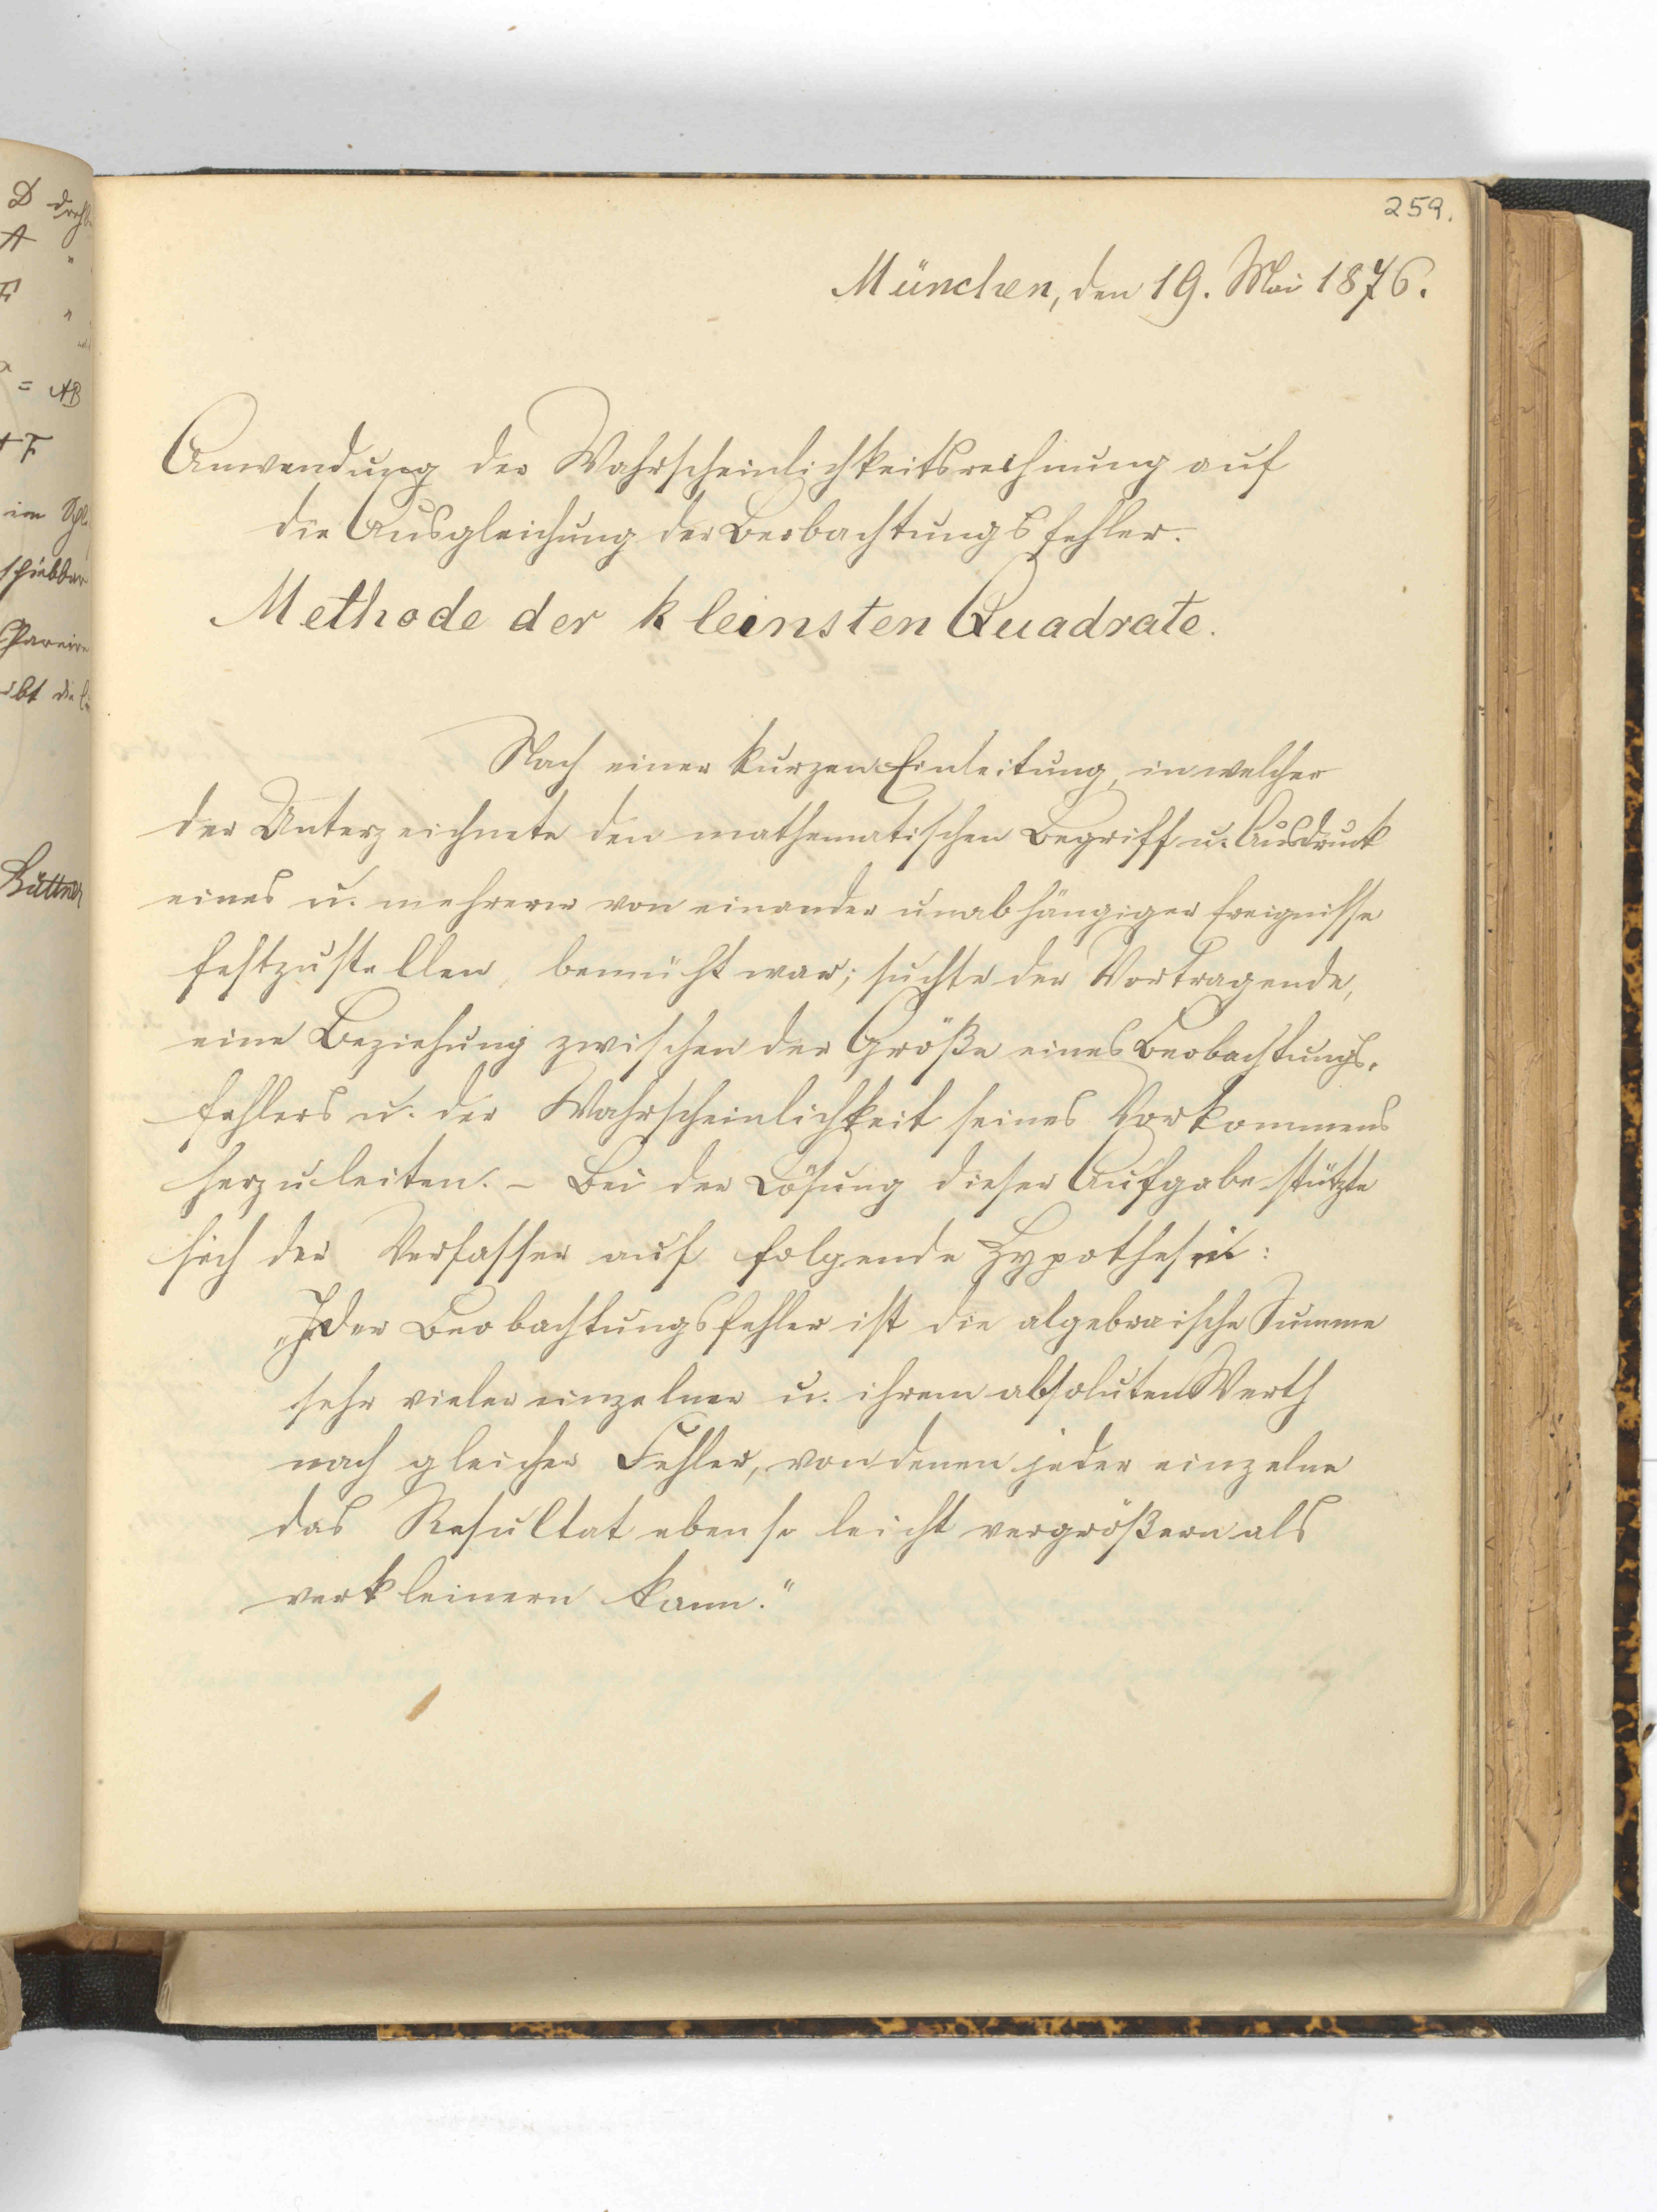 259.
München, den 19. Mai 1876.
Anwendung der Wahrscheinlichkeitsrechnung auf
die Ausgleichung der Beobachtungsfehler.
Methode der kleinsten Quadrate.
Nach einer kurzen Einleitung, in welcher
der Unterzeichnete den mathematischen Begriff u. Ausdruck
eines u. mehrerer von einander unabhängiger Ereignisse
festzustellen, bemüht war; suchte der Vortragende,
eine Beziehung zwischen der Größe eines Beobachtungs-
fehlers u. der Wahrscheinlichkeit seines Vorkommens
herzuleiten. – Bei der Lösung dieser Aufgabe stützte
sich der Verfasser auf folgende Hypothese:
„Jeder Beobachtungsfehler ist die algebraische Summe
sehr vieler einzelner u. ihrem absoluten Werth
nach gleicher Fehler, von denen jeder einzelne
das Resultat eben so leicht vergrößern als
verkleinern kann."
D
A
F
= AB
+ F
im